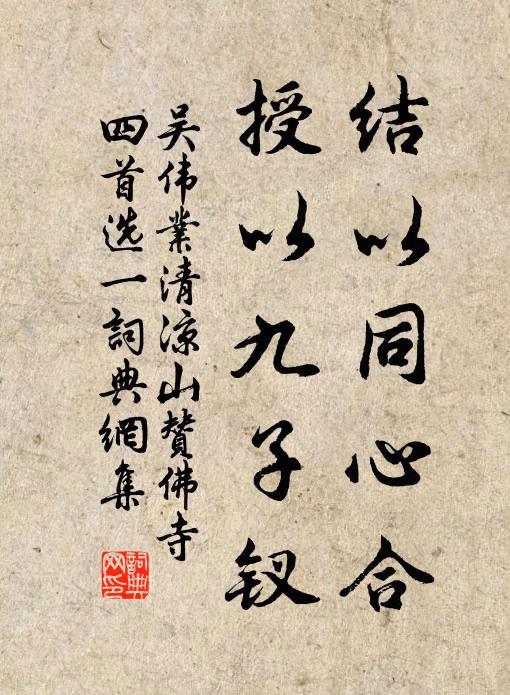 结以同心合
授以九子钗
吴伟業清凉山赞佛寺
四首选一詞典網集
詞典网印